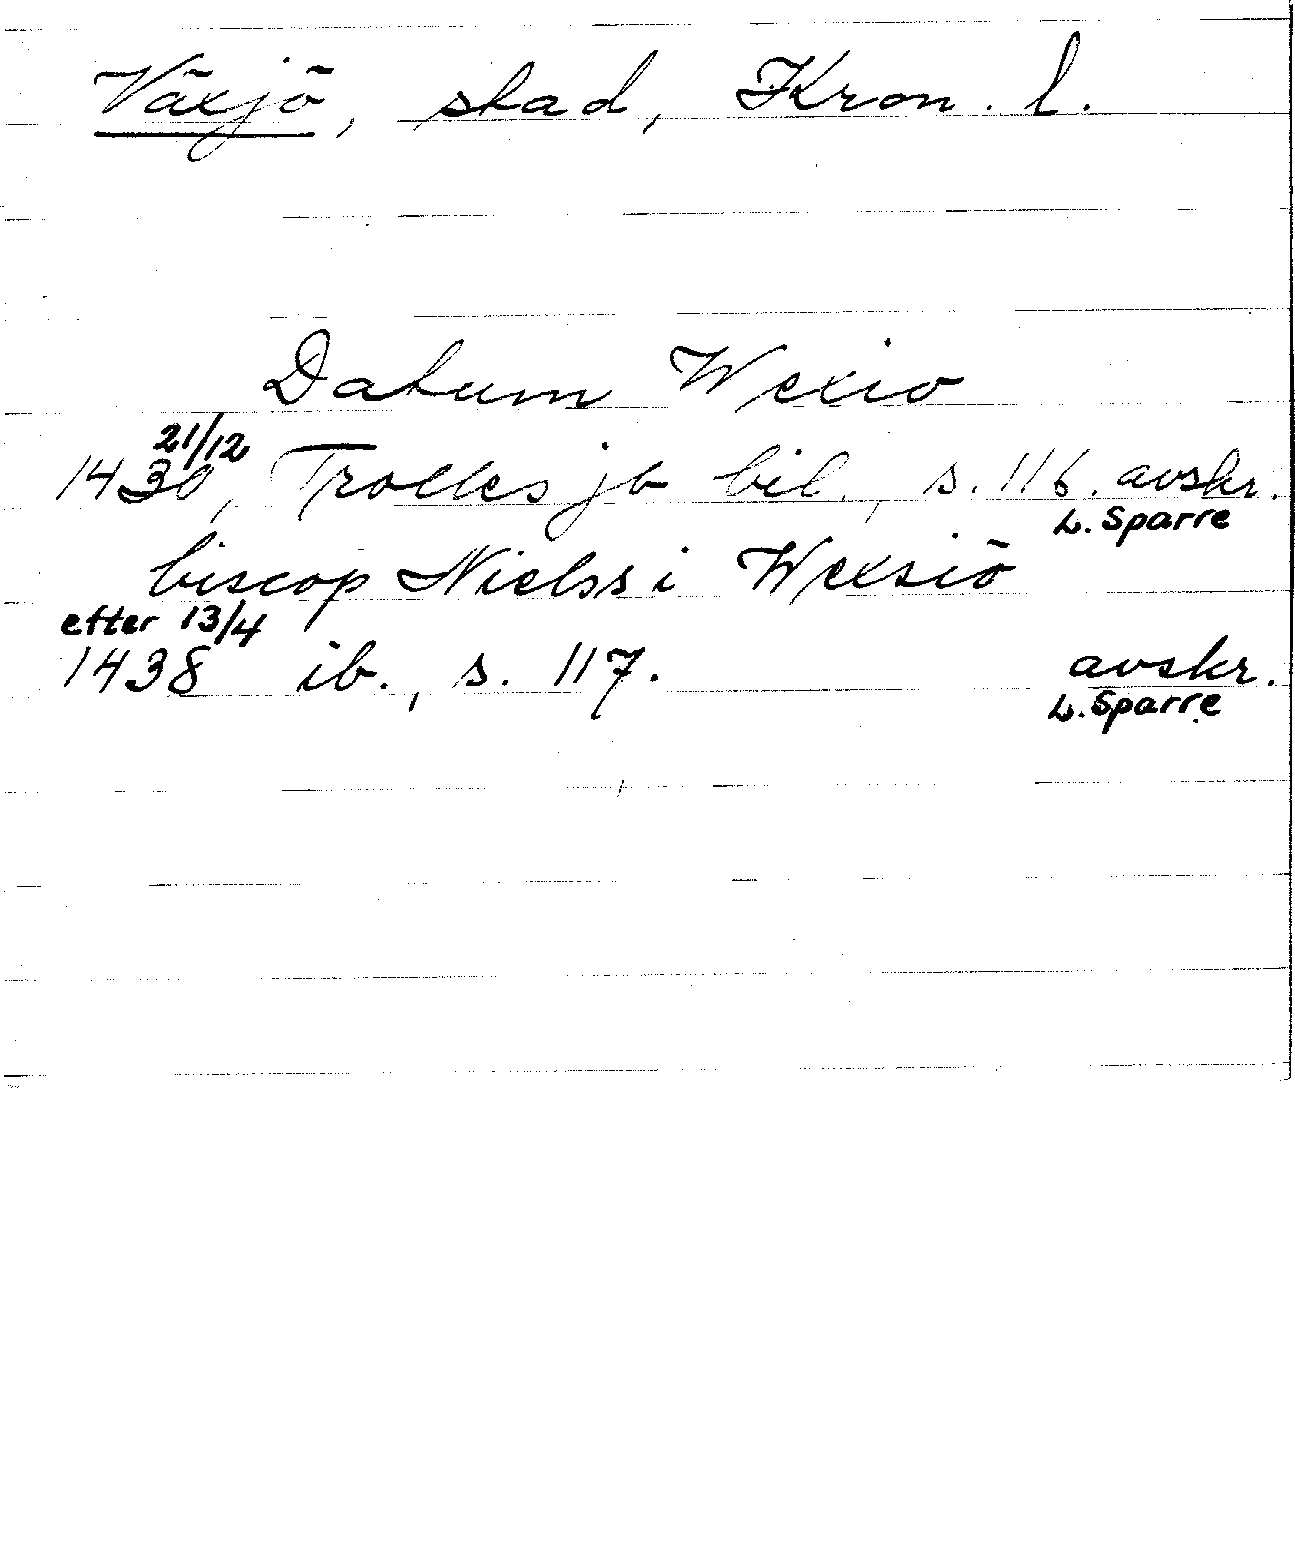 Växjö, stad, Kron. l.
Datum Wexio
21/12
1430, Trolles jb bil., s. 116. avskr.
L. Sparre
biscop Nielss i Wexsiö
efter 13/4
1438 ib., s. 117. avskr.
L. Sparre